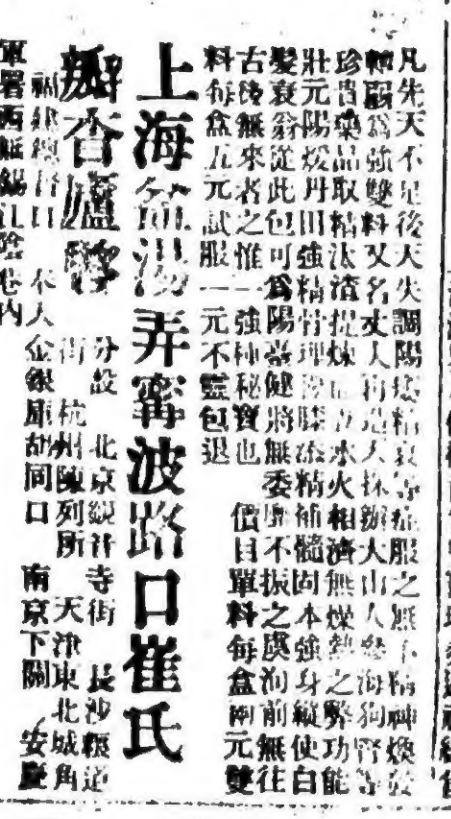 凡先天不足後天失調陽痿精衰等症服之無不精神煥發
轉弱爲強雙料又名大採辦大山人參海狗腎等
珍貴藥品取精汰渣提煉水火相濟無燥熱之弊功能
壯元陽煖丹田強精骨理腰膝添精補髓固本強身縱使白
髮衰翁從此包可爲陽臺健將無委靡不振之虞洵前無往
古後無來者之惟一強種秘寶也 價目單料每盒兩元雙
料每盒五元試服一元不靈包退
上海盆湯弄甯波路口崔氏
瓣香廬
分設 北京觀音寺街 長沙道
街 杭州陳列所 天津東北城角
福建口 奉天金銀庫胡同口 南京下關 安慶
軍署西無錫江陰巷內